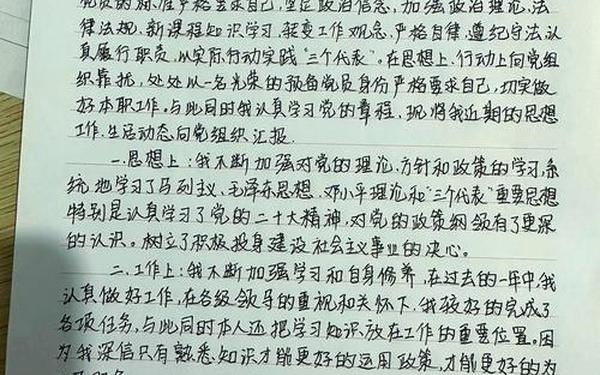 党员的标准严格要求自己,坚定政治信念,加强政治理论,法
律法规、新课程知识学习,转变工作观念,严格自律,遵纪守法,认
真履行职责,以实际行动实践“三个代表”。在思想上、行动上向党组
织靠拢,处处以一名光荣的预备党员身份严格要求自己,切实做
好本职工作。与此同时我认真学习党的章程,现将我近期的思想
工作、生活动态向党组织汇报.
一.思想上:我不断加强对党的理论、方针和政策的学习,系
统地学习了马列主义、毛泽东思想、邓小平理论和“三个代表”重要思想
特别是认真学习了党的二十大精神,对党的政策纲领有了更深
的认识。树立了积极投身建设社会主义事业的决心。
二.工作上:我不断加强学习和自身修养,在过去的一年中,我
认真做好工作,在各级领导的重视和关怀下,我较好的完成了
各项任务,与此同时本人还把学习知识放在工作的重要位置。因
为我深信只有熟悉知识才能更好的运用政策,才能更好的为